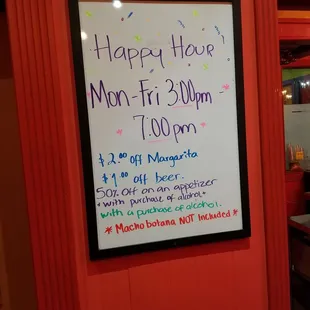 Happy Hour
Mon-Fri 3:00pm -
7:00pm
$2.00 off Margarita
$1.00 off beer.
50% off on an appetizer
*with purchase of alcohol*
with a purchase of alcohol.
* Macho botana NOT Included *